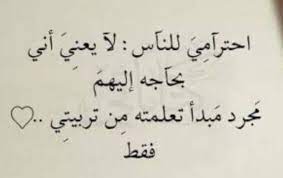 احترآمِيَ للنآس : لآ يعنِيَ أني
بحَآجه إليهمَ
مَجرد مَبدأ تعلمته مِن تربيتِي ..♡
فقط